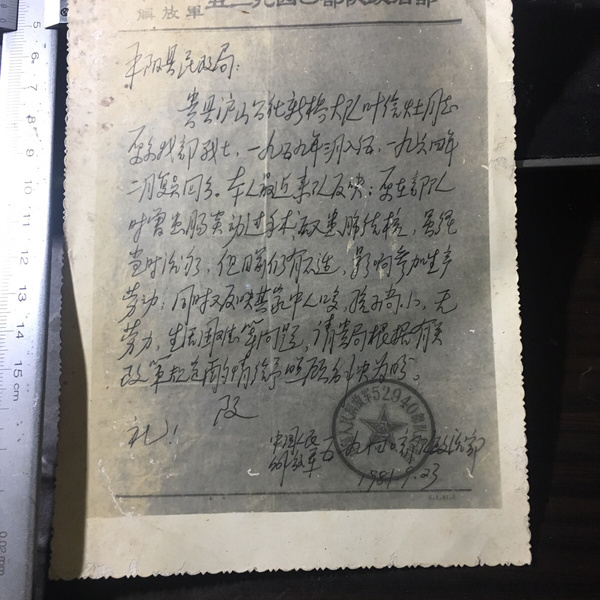 解放軍五二九四〇部队政治部
平阳县民政局：
贵县庐山公社新桥大队叶信灶同志
原系我部战士，一九五九年三月入伍，一九六四年
二月复员回乡。本人最近来队反映：原在部队
时曾患肠炎动过手术，又患肺结核，虽经
当时治好，但
影响参加生产
劳动；同时又反映其家中人口多，孩子小，无
劳力，生活困难等问题，请贵局根据有关
政策规定酌情给予照顾解决为盼。
致
礼！
中国人民
解放军五二九四〇部队政治部
52940
1981.9.23
5
6
7
8
9
10
11
12
13
14
15 cm
0.02mm